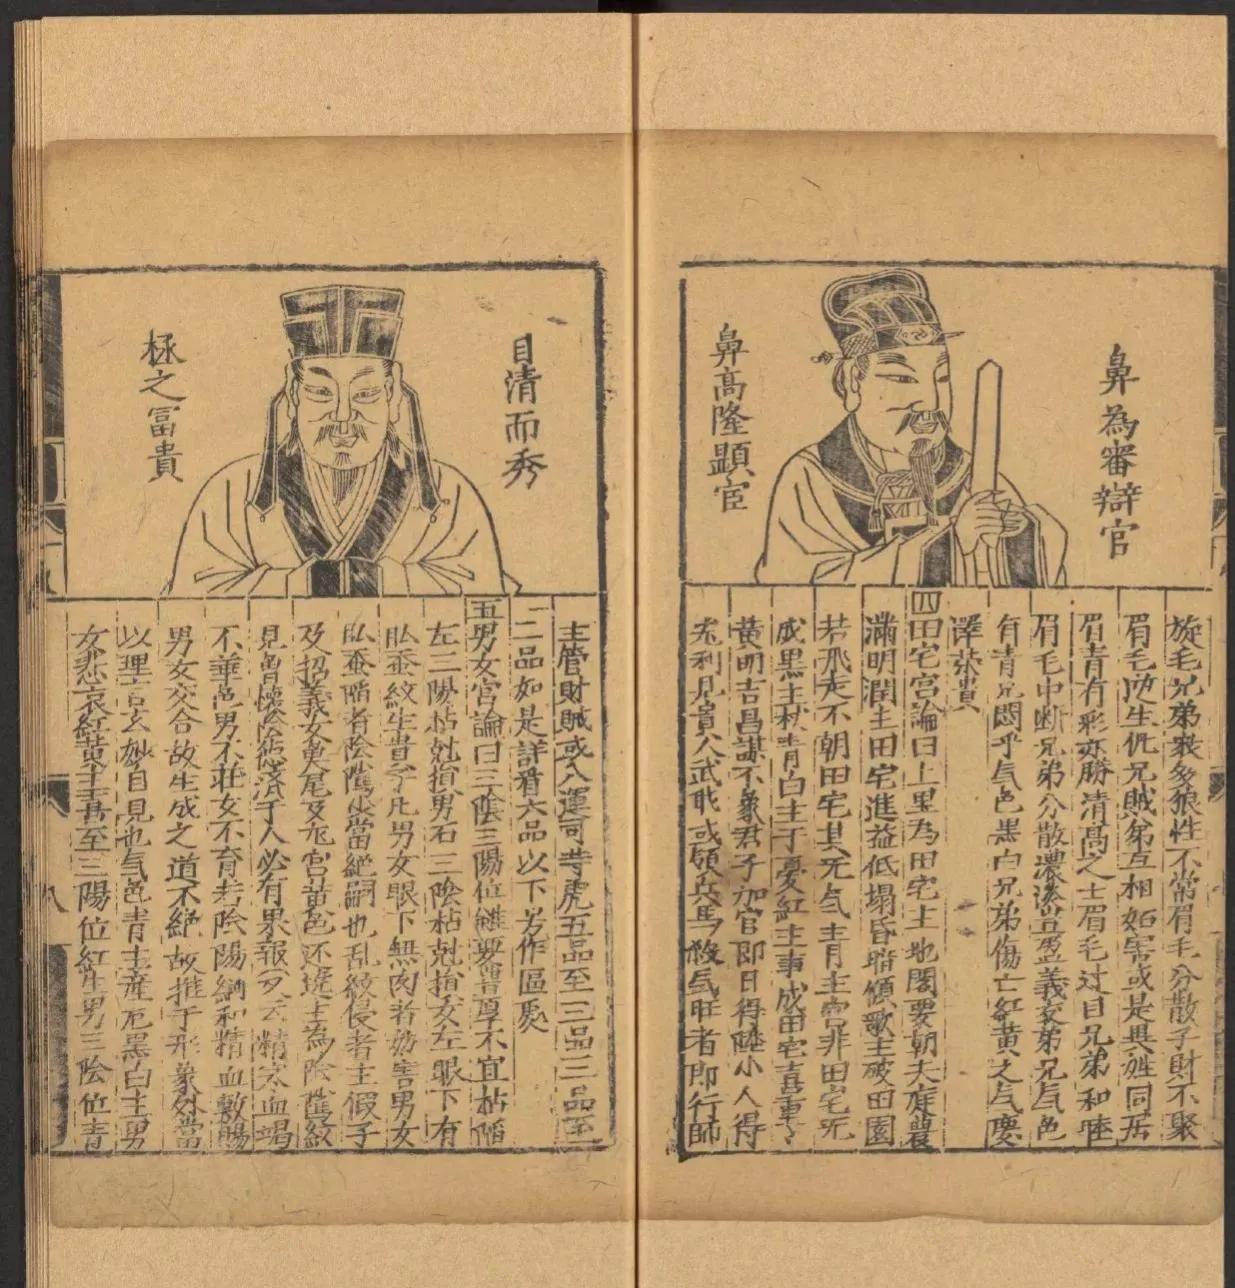 鼻為審辯官
鼻高隆顕官
旋毛兄弟衆多狼性不常眉毛分散子財不聚
眉毛迯生仇兄賊弟互相妬害或是異姓同居
眉青有彩亦勝清高之士眉毛过目兄弟和睦
眉毛中断兄弟分散濃淡豈盈義交弟兄气色
有青兄鬪乎气色黑白兄弟傷亡紅黄之气慶
澤荣貴
四田宅宮論曰上里為田宅主地閣要朝天庭農
滿明潤主田宅進益低塌昏暗傾歌主破田園
若飛走不朝田宅其无气青主官非田宅无
成黒主秋青白主丁憂紅主事成田宅喜重〻
黄明吉昌謀不象君子加官即日得陞小人得
寵利見貴人武耽或領兵馬殺气旺者即行師
目清而秀
極之冨貴
主管財賊或八運司寺虎五品至三品二品至
一二品如是詳看六品以下另作區処
五男女宮論曰三陰三陽位雖要豊厚不宜枯陷
左三陽枯尅損男右三陰枯尅損女左眼下有
臥蚕紋生貴子凡男女眼下無肉者妨害男女
臥蚕陷者陰隲少當絶嗣也乱紋侵者主假子
及招義女奠尾及龙宮黄色还遶主為陰隲紋
見曾懷陰德済于人必有果報又云精寒血竭
不華色男不莊女不育若陰陽綱和精血敷暢
男女交合故生成之道不絶故推于形象外當
以理言玄妙自見也气色青主産厄黒白主男
女悲哀紅黄主喜至三陽位紅生男三陰位青